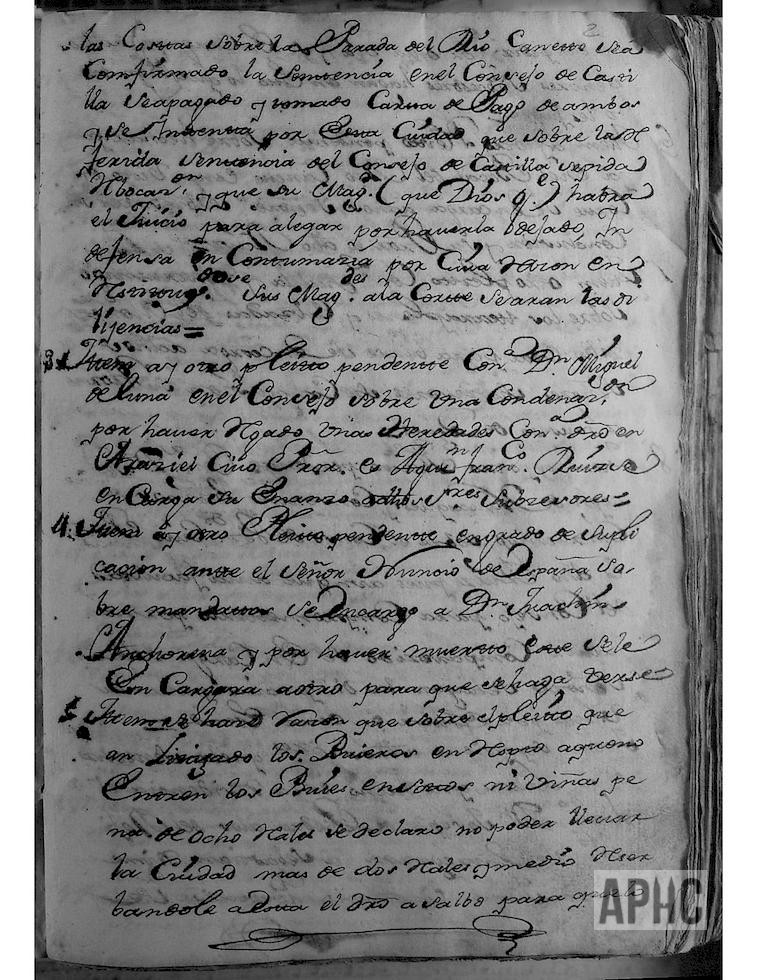 2
las Costas sobre la Parada del Rio Canette sea
Comfirmado la sentencia en el Consejo de Casti
lla seapagado y tomado Carta de Pago de ambos
y se Intenta por Esta Ciudad que sobre la Re
ferida sentencia del Consejo de Castilla sepida
Rbocaz.on y que su Mag.d (que Dios g.e) habra
el Juicio para alegar por haverla dejado In
defensa en Contumazia por Cuia Razon en
sus Mag.des ala Corte searan las di
lijencias =
3 Ittem ay otro pleitto pendentte Con.a Dn Miguel
de luna en el Consejo sobre una Condenaz.on
por haver Rgado Unas Heredades Con.a dro en
Cuio Pror. es Agun.n fran.co Ruiz se
en Carga su
4 Ittem ay otro Pleito pendentte en grado de supli
cacion antte el señor Nuncio de España so-
bre mandattos se Encargo a Dn Juachin
Anchorena y por haver muertto este sele
En Cargara aotro para que sehaga verse
5 Ittem se hace Razon que sobre el pleitto que
an litigado los Buieros en Rapto aqueno
Entren los Buies en sotos ni viñas pe
na de ocho Rales se declaro no poder llevar
la Ciudad mas de dos Rales y medio Reser
bandole a el dro a salbo para que lo
APHC